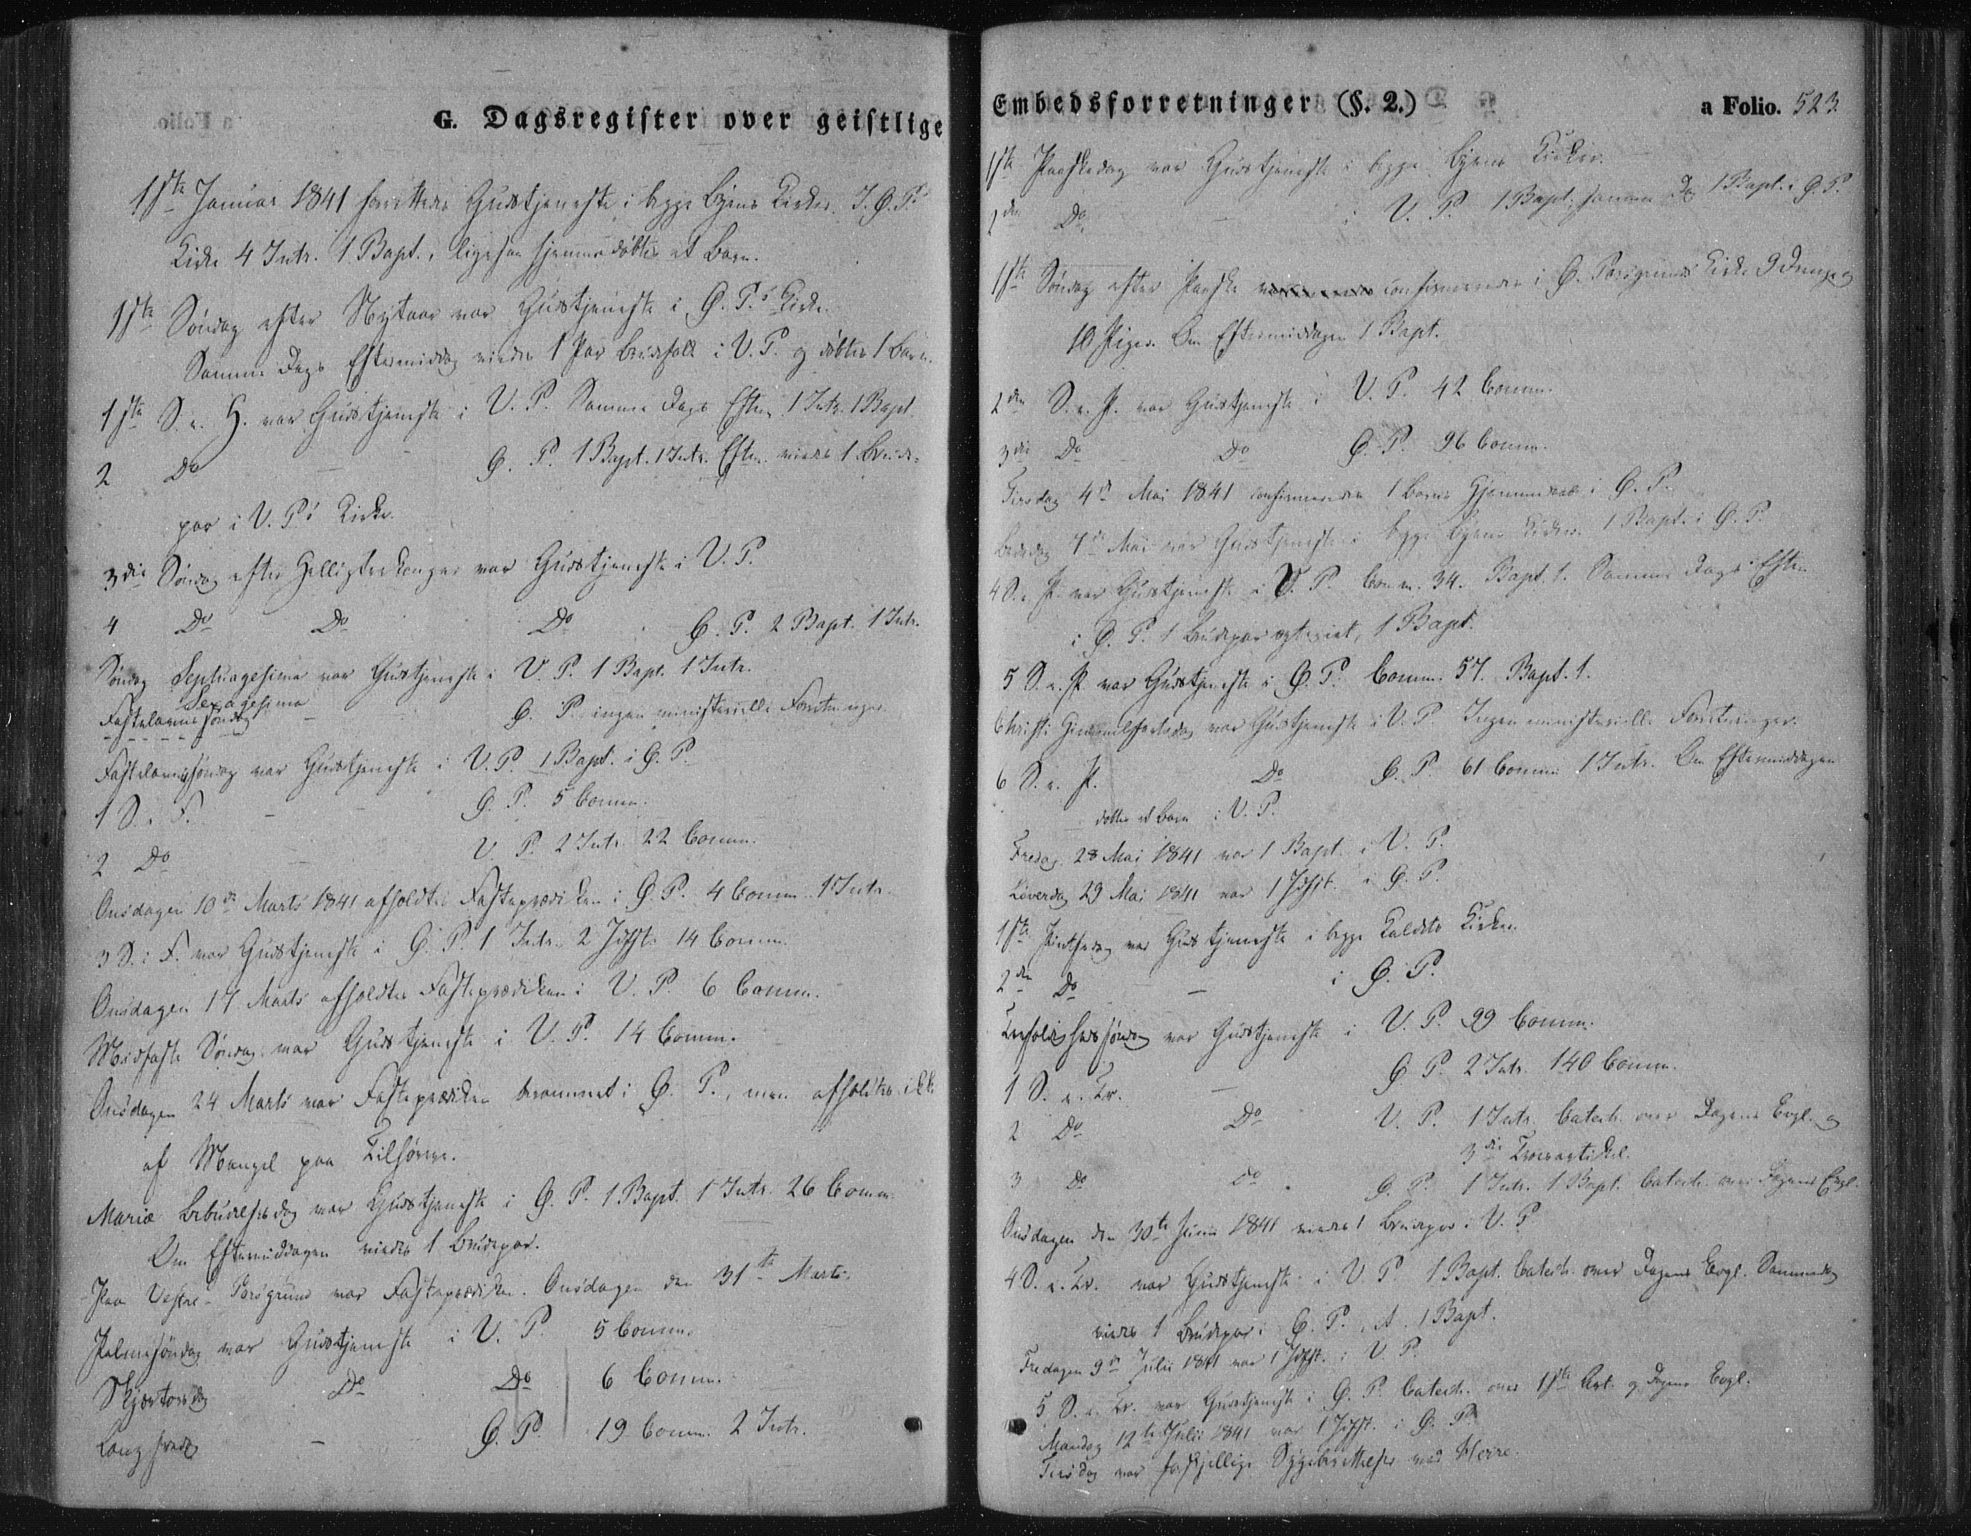 G. Dagsregister over geistlige
1ste Januar 1841 forrettedes Gudstjeneste i begge Byens Kirker. I Ø. P.s
Kirke 4 Intr. 1 Bapt., ligesaa hjemmedøbtes et Barn.
1ste Søndag efter Nytaar var Gudstjeneste i Ø. P.s Kirke.
Samme Dags Eftermiddag viedes 1 Par Brudefolk i V. P. og døbtes 1 Barn.
1ste S. e. H. var Gudstjeneste i V. P. Samme Dags Efterm. 1 Intr. 1 Bapt.
2 Do – Ø. P. 1 Bapt. 1 Intr. Efterm. viedes 1 Brude-
par i V. P.s Kirke.
3die Søndag efter Helligtrekonger var Gudstjeneste i V. P.
4 Do Do Do Ø. P. 2 Bapt. 1 Intr.
Søndag Septuagesima var Gudstjeneste i V. P. 1 Bapt. 1 Intr.
Sexagesima
Fastelavns Søndag – Ø. P. ingen ministerielle Forretninger.
Fastelavnssøndag var Gudstjeneste i V. P. 1 Bapt. i Ø. P.
1 S. i F. – Ø. P. 5 Comm.
2 Do – V. P. 2 Intr. 22 Comm.
Onsdagen 10de Marts 1841 afholdtes Fasteprædiken i Ø. P. 4 Comm. 1 Intr.
3 S. i F. var Gudstjeneste i Ø. P. 1 Intr. 2 Jdfst. 14 Comm.
Onsdagen 17 Marts afholdtes Fasteprædiken i V. P. 6 Comm.
Midfaste Søndag var Gudstjeneste i V. P. 14 Comm.
Onsdagen 24 Marts var Fasteprædiken berammet i Ø. P., men afholdtes ikke
af Mangel paa Tilhørere.
Mariæ Bebudelsesdag var Gudstjeneste i Ø. P. 1 Bapt. 1 Intr. 26 Comm.
Om Eftermiddagen viedes 1 Brudepar.
Paa Vestre-Porsgrund var Fasteprædiken Onsdagen den 31te Marts.
Palmesøndag var Gudstjeneste i V. P. 5 Comm.
Skjærtorsdag Do Do 6 Comm.
Langfredag – Ø. P. 19 Comm. 2 Intr.
Embedsforretninger (§. 2.) a Folio. 523.
1ste Paaskedag var Gudstjeneste i begge Byens Kirker.
2den Do – i V. P. 1 Bapt. samme Dag 1 Bapt. i Ø. P.
1ste Søndag efter Paaske confirmeredes i Ø. Porsgrunds Kirke 9 Drenge og
10 Piger. Om Eftermiddagen 1 Bapt.
2den S. e. P. var Gudstjeneste i V. P. 42 Comm.
3die Do Do Ø. P. 96 Comm.
Tirsdag 4de Mai 1841 confirmeredes 1 Barn hjemme i Ø. P.
Bededag 7de Mai var Gudstjeneste i begge Byens Kirker. 1 Bapt. i Ø. P.
4 S. e. P. var Gudstjeneste i V. P. Comm. 34. Bapt. 1. Samme Dags Efterm.
i Ø. P. 1 Brudepar copuleret, 1 Bapt.
5 S. e. P. var Gudstjeneste i Ø. P. Comm. 57. Bapt. 1.
Christi Himmelfartsdag var Gudstjeneste i V. P. Ingen ministerielle Forretninger.
6 S. e. P. Do Ø. P. 61 Comm. 1 Intr. Om Eftermiddagen
døbtes et Barn i V. P.
Fredag 28 Mai 1841 var 1 Bapt. i V. P.
Løverdag 29 Mai 1841 var 1 Jdfst. i Ø. P.
1ste Pintsedag var Gudstjeneste i begge Kaldets Kirker.
2den Do – i Ø. P.
Trefoldighedssøndag var Gudstjeneste i V. P. 99 Comm.
1 S. e. Tr. – Ø. P. 2 Intr. 140 Comm.
2 Do Do V. P. 1 Intr. Catech. over Dagens Evgl. og
3die Troesartikel.
3 Do Do Ø. P. 1 Intr. 1 Bapt. Catech. over Dagens Evgl.
Onsdagen den 30te Juni 1841 viedes 1 Brudepar i V. P.
4 S. e. Tr. var Gudstjeneste i V. P. 1 Bapt. Catech. over Dagens Evgl. Samme Dag
viedes 1 Brudepar i Ø. P. 1 Bapt.
Fredagen 9de Julii 1841 var 1 Jdfst. i V. P.
5 S. e. Tr. var Gudstjeneste i Ø. P. Catech. over 1ste Art. og Dagens Evgl.
Mandag 12te Julii 1841 var 1 Jdfst. i Ø. P.
Tirsdag var forskjellige Sygeberettelser ved